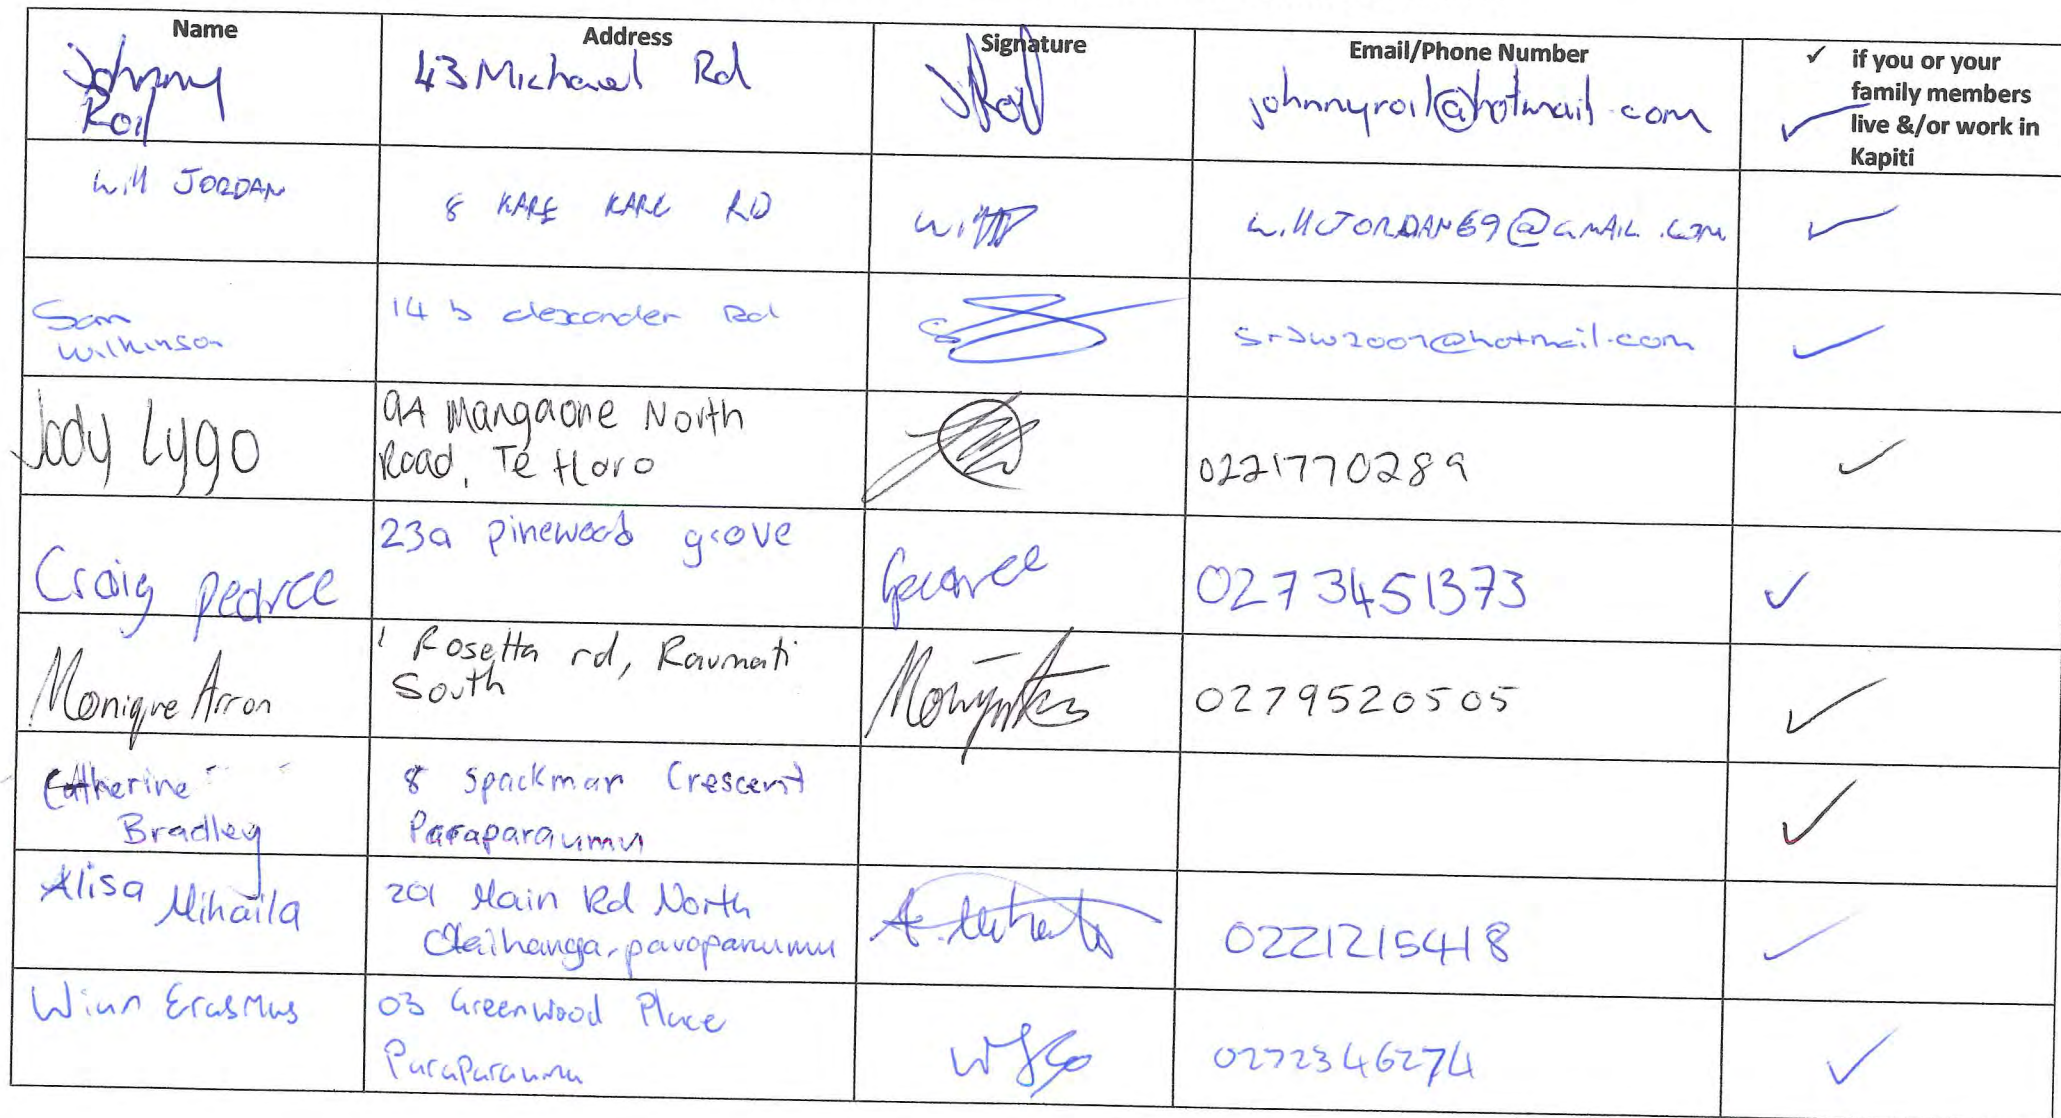 Name Address Signature Email/Phone Number ✓ if you or your family members live &/or work in Kapiti
Johnny Roil 43 Michael Rd johnnyroil@hotmail.com ✓
Will JORDAN 8 KARE KARE RD WillJORDAN69@GMAIL.COM ✓
Sam Wilkinson 14 b alexander Rd @hotmail.com ✓
Jody Lygo 9A Mangaone North Road, Te Horo 0221770289 ✓
Craig pearce 23a pinewood grove 0273451373 ✓
Monique Arron 1 Rosetta rd, Raumati South 0279520505 ✓
Catherine Bradley 8 Spackman Crescent Paraparaumu ✓
Alisa Mihaila 201 Main Rd North Otaihanga, paraparaumu 0221215418 ✓
Erasmus 03 Greenwood Place Paraparaumu 0272346274 ✓